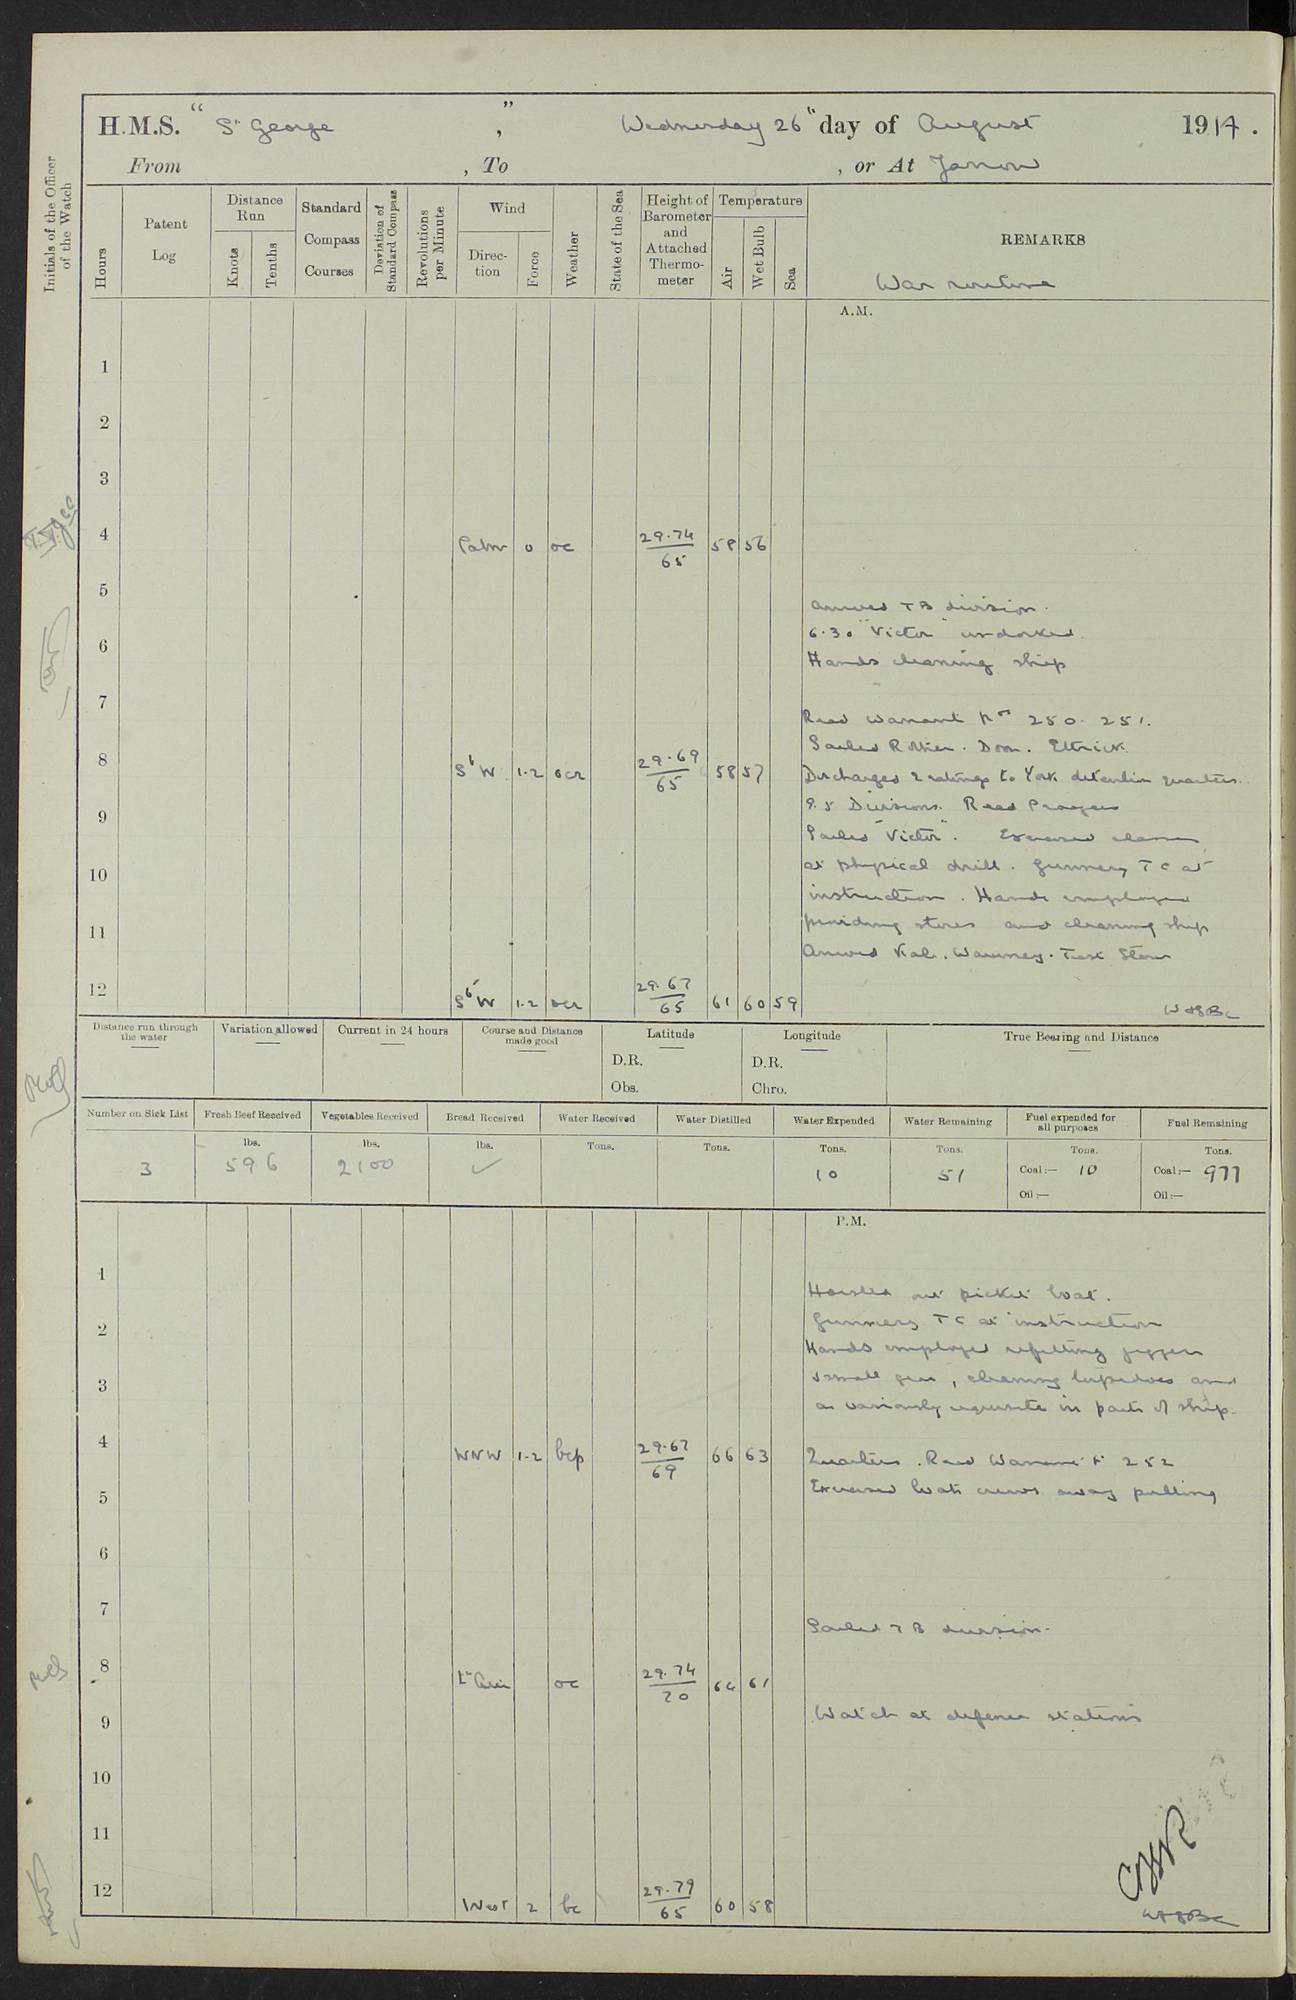 H.M.S. "St George", Wednesday 26th day of August 1914.
From , To , or At Jarrow
Initials of the Officer of the Watch
Hours
Patent Log
Distance Run
Knots
Tenths
Standard Compass Courses
Deviation of Standard Compass
Revolutions per Minute
Wind
Direction
Force
Weather
State of the Sea
Height of Barometer and Attached Thermometer
Temperature
Air
Wet Bulb
Sea
REMARKS
War routine
A.M.
1
2
3
4 Calm 0 oc 29.74 65 58 56
5
Arrived TB division.
6.30 "Victor" undocked.
6
Hands cleaning ship
7
Read Warrant Nos 250. 251.
Sailed Rother. Doon. Ettrick.
8 SbW 1-2 ocr 29.69 65 58 57
Discharged 2 ratings to York detention quarters.
9.5 Divisions. Read Prayers
9
Sailed "Victor". Exercised classes
at physical drill. Gunnery TC at
10
instruction. Hands employed
11
providing stores and cleaning ship
Arrived Kale. Waveney. Test Stour
12 SbW 1-2 ocr 29.67 65 61 60 59
Distance run through the water
Variation allowed
Current in 24 hours
Course and Distance made good
Latitude
D.R.
Obs.
Longitude
D.R.
Chro.
True Bearing and Distance
Number on Sick List
Fresh Beef Received
Vegetables Received
Bread Received
Water Received
Water Distilled
Water Expended
Water Remaining
Fuel expended for all purposes
Fuel Remaining
lbs. lbs. lbs. Tons. Tons. Tons. Tons. Tons. Tons.
3 596 2100 ✓ 10 51 Coal:— 10 Coal:— 977
Oil:— Oil:—
P.M.
1
Hoisted out picket boat.
2
Gunnery TC at instruction
Hands employed refitting jiggers
3
small gear, cleaning torpedoes and
as variously requisite in parts of ship.
4 WNW 1-2 bcp 29.67 69 66 63
Quarters. Read Warrant No 252
5
Exercised boats crews away pulling
6
7
Sailed TB division.
8 Lt Airs oc 29.74 70 64 61
9
Watch at defence stations
10
11
12 West 2 bc 29.79 65 60 58